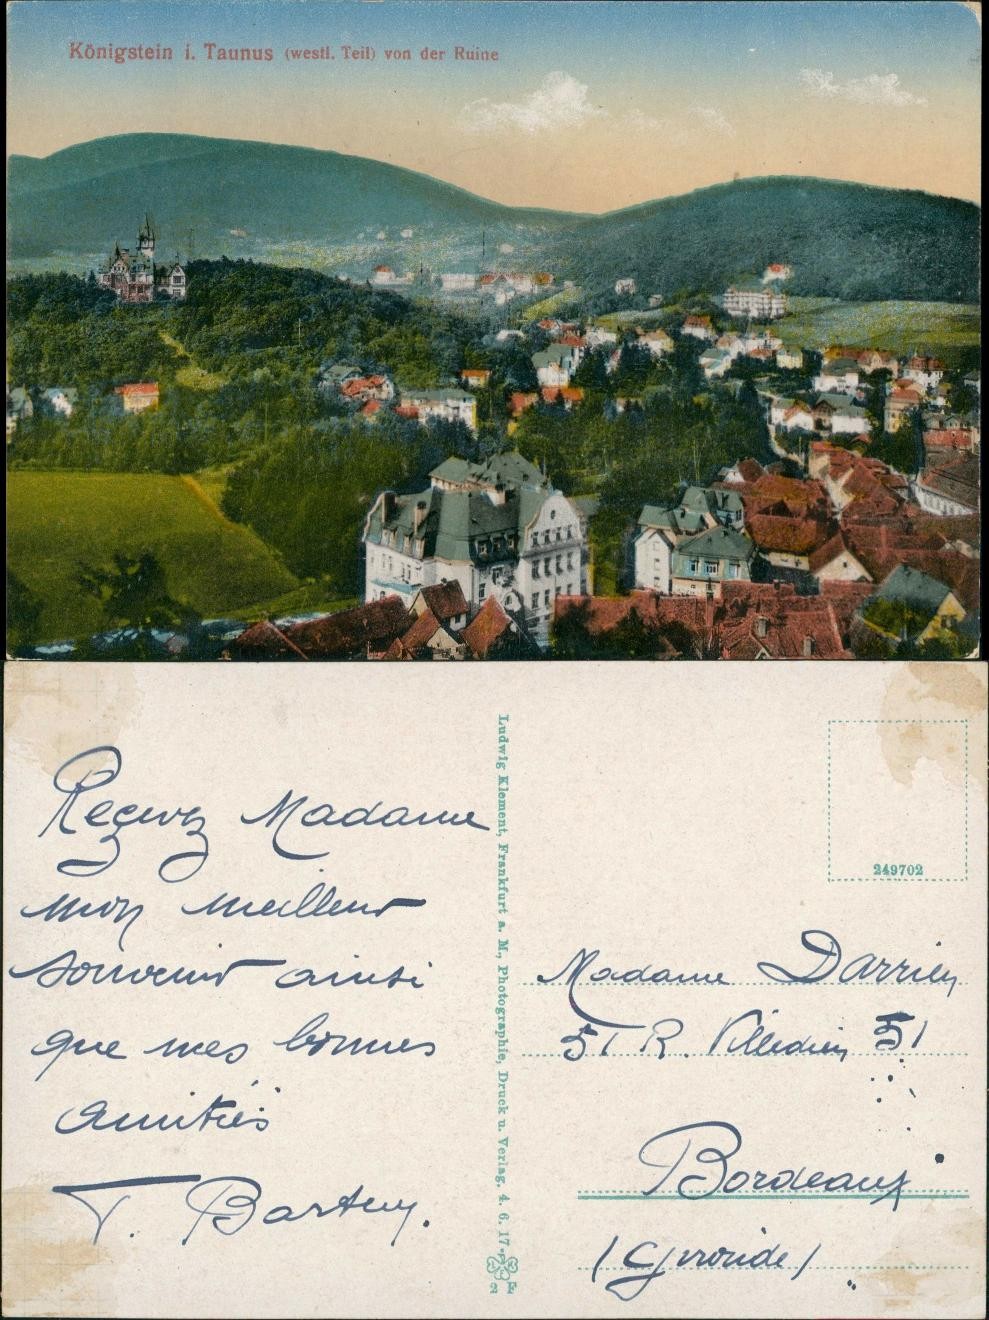 Königstein i. Taunus (westl. Teil) von der Ruine
Reçevez Madame
mon meilleur
souvenir ainsi
que mes bonnes
amitiés
T.
Ludwig Klement, Frankfurt a. M., Photographie, Druck u. Verlag. 4. 6. 17
249702
Madame Darrien
51 R. Villedieu 51
Bordeaux
(Gironde)